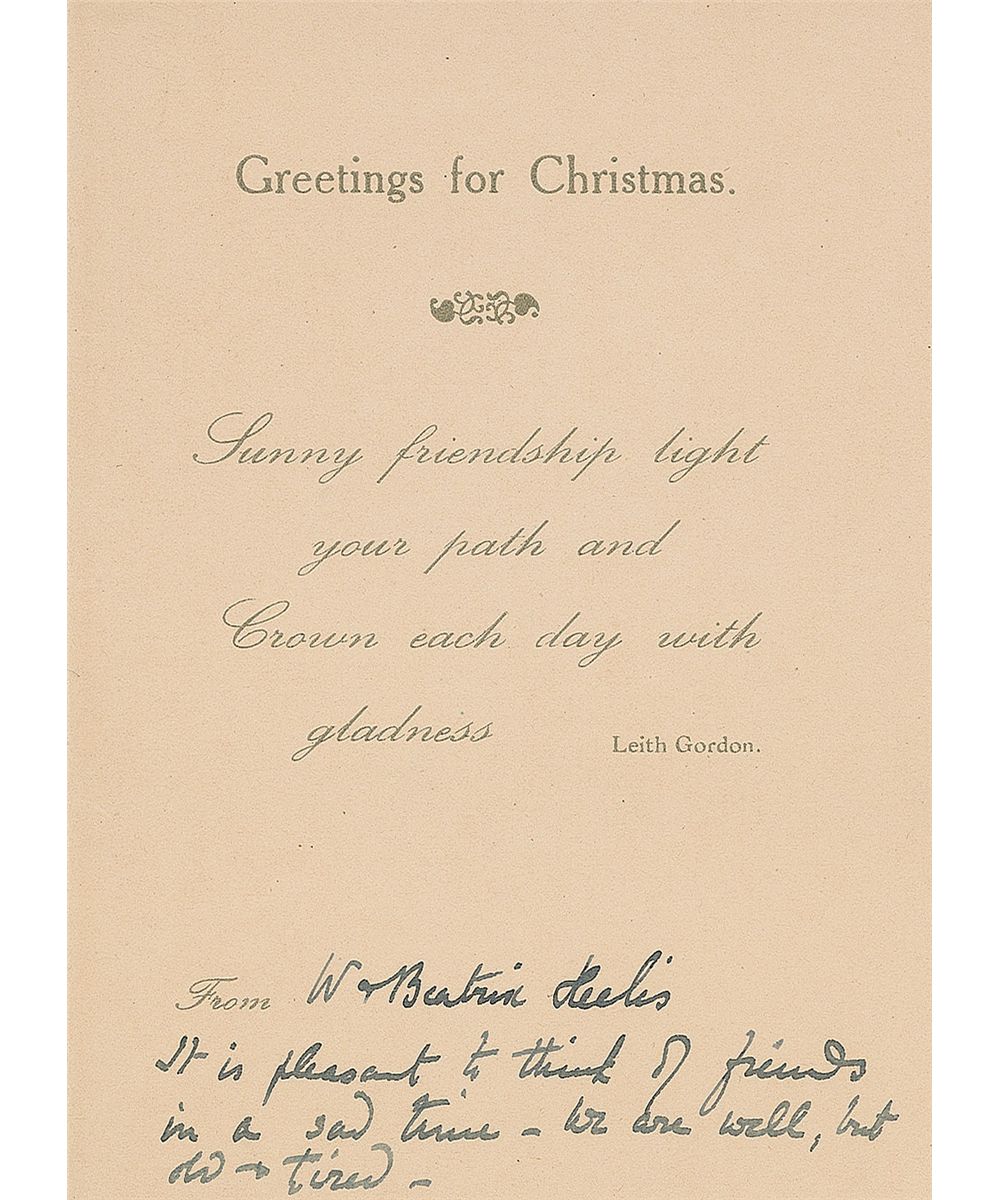 Greetings for Christmas.
Sunny friendship light
your path and
Crown each day with
gladness
Leith Gordon.
From W & Beatrix Heelis
It is pleasant to think of friends
in a sad time - We are well, but
old & tired -